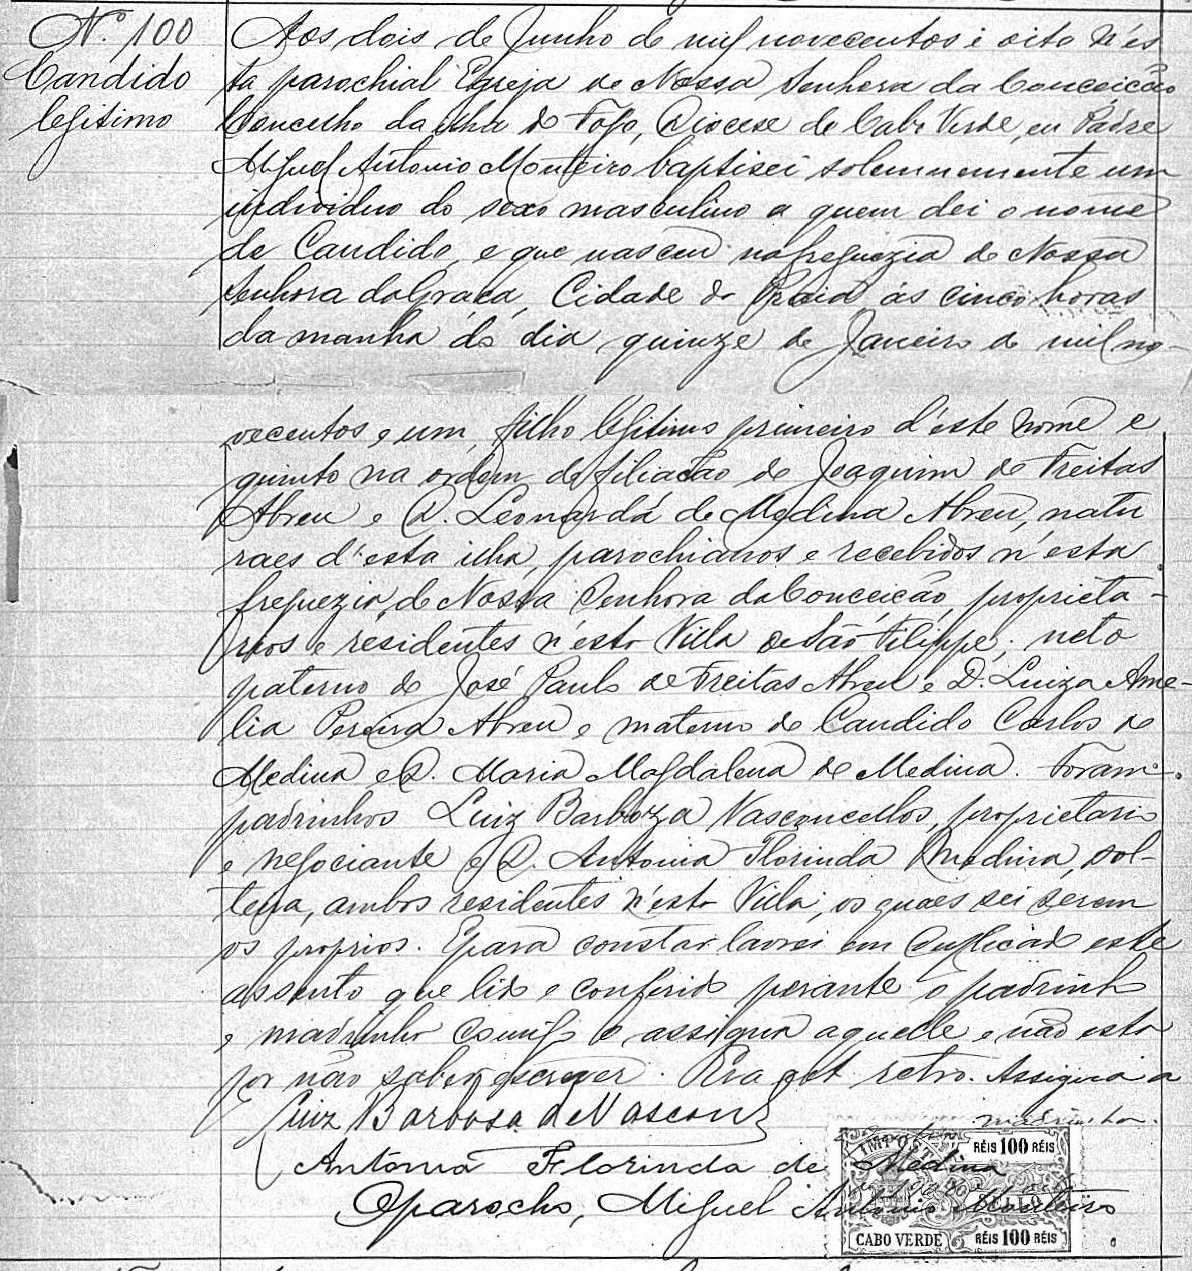 Nº 100
Candido
legitimo
Aos dois de Junho de mil novecentos e oito n'es
ta parochial Egreja de Nossa Senhora da Conceição
Concelho da ilha do Fogo, Diocese de Cabo Verde, eu Padre
Miguel Antonio Monteiro baptisei solemnemente um
individuo do sexo masculino a quem dei o nome
de Candido, e que nasceu na freguezia de Nossa
Senhora da Graça, Cidade da Praia ás cinco horas
da manhã do dia quinze de Janeiro de mil no-
vecentos e um, filho legitimo primeiro d'este nome e
quinto na ordem de filiação de Joaquim de Freitas
Abreu e D. Leonarda de Medina Abreu, natu
raes d'esta ilha, parochianos e recebidos n'esta
freguezia de Nossa Senhora da Conceição, proprieta-
rios e residentes n'esta Villa de São Filippe; neto
paterno de José Paulo de Freitas Abreu e D. Luiza Ame-
lia Pereira Abreu e materno de Candido Carlos de
Medina e D. Maria Magdalena de Medina. Foram
padrinhos Luiz Barboza Vasconcellos, proprietario
e negociante e D. Antonia Florinda Medina, sol-
teira, ambos residentes n'esta Villa, os quaes sei serem
os proprios. E para constar lavrei em duplicado este
assento que lido e conferido perante o padrinho
e madrinha comigo o assigna aquelle e não esta
por não saber escrever. Era ut retro. Assigna a
madrinha.
Luiz Barbosa de Vascon
Antonia Florinda de Medina
O parocho, Miguel Antonio Monteiro
IMPOSTO
RÉIS 100 RÉIS
SELLO
CABO VERDE
RÉIS 100 RÉIS